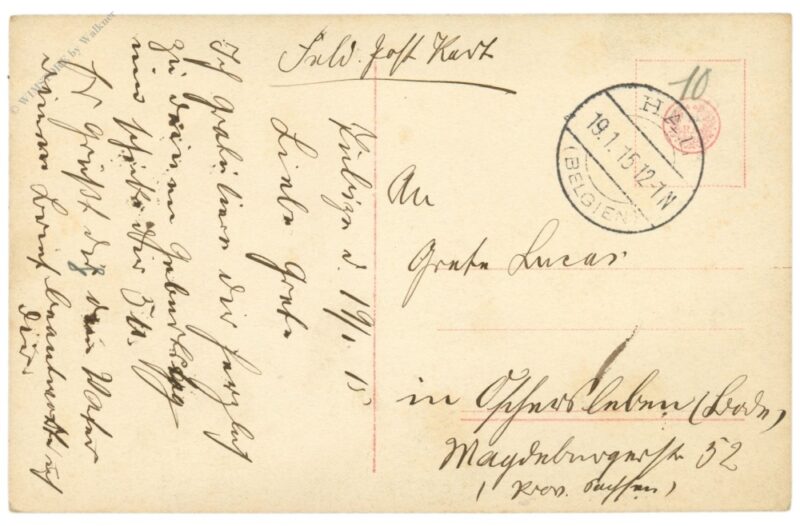 Feld. Post Kart
d. 19/1 15
Liebe Grete
Ich gratuliere dir herzlich
zu deinem Geburtstag
und schicke dir 5 M.
Er grüßt dich dein Vater
deinen Brief beantworte ich
dir.
10
HAL
19.1.15.12-1N
(BELGIEN)
An
Grete Lucas
in Oschersleben (Bode)
Magdeburgerstr 52
(Prov. Sachsen)
by Walkner